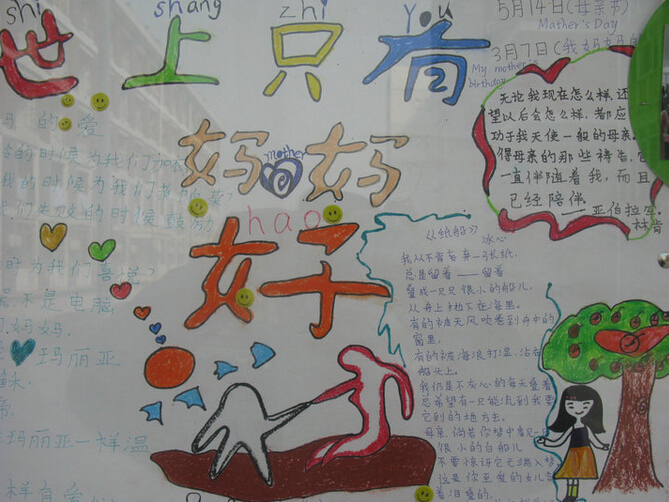 shi shang zhi you
世上只有
妈妈
mother
hao
好
5月14日(母亲节)
Mother's Day
3月7日(我妈妈的
My mother's
birthday
无论我现在怎么样,还
望以后会怎么样,都应
功于我天使一般的母亲,
得母亲的那些祷告,
一直伴随着我,而且
已经陪伴
——亚伯拉
林肯
的爱
的时候为我们
我的时候为我们
们失败的时候鼓励
时为我们喜悦?
不是电脑
妈妈
玛丽亚
玛丽亚一样温
样有爱
《纸船》
冰心
我从不肯妄弃一张纸,
总是留着——留着
叠成一只只很小的船儿,
从舟上抛下在海里。
有的被天风吹卷到舟中的
窗里,
有的被海浪打湿,沾在
船头上。
我仍是不灰心的每天叠着
总希望有一只能流到我要
它到的地方去。
母亲,倘若你梦中看见一只
很小的白船儿
不要惊讶它无端入梦
这是你至爱的女儿
着泪叠的。